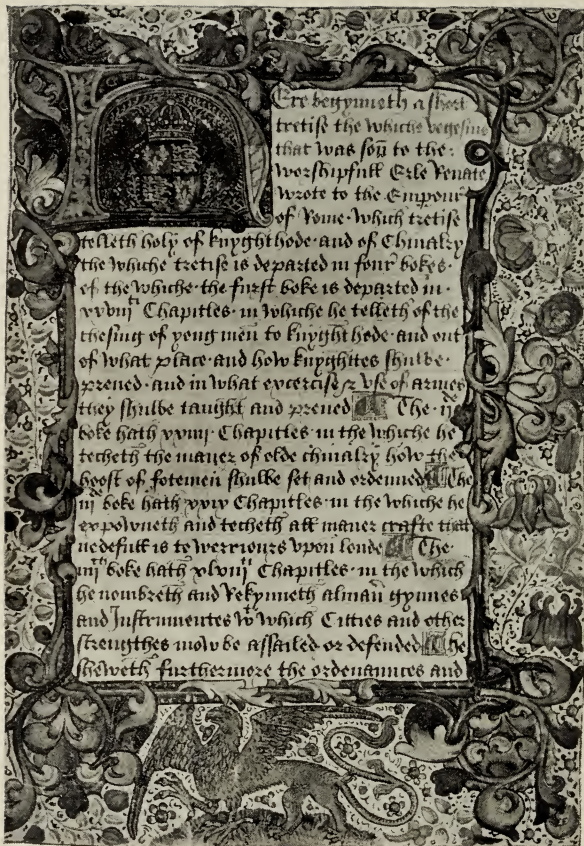 Here begynneth a short
tretise the whiche vegesius
that was soñ to the
worshipfull Erle Renate
wrote to the Emperour
of Rome · which tretise
telleth holy of knyghthode · and of Chiualry
the whiche tretise is departed in four bokes ·
of the whiche · the furst boke is departed in ·
xxviij ti Chapitles · in whiche he telleth of the
chesing of yong men to knyghthode · and out
of what place · and how knyghtes shulbe ·
preued · and in what excercise & vse of armes
they shulbe taught and preued The · ij de
boke hath xxiiij · Chapitles · in the whiche he
techeth the maner of olde chiualry how the
hoost of fotemen shulbe set and ordenned The
iij de boke hath xxvj Chapitles · in the whiche he
expowneth and techeth all maner crafte that
nedefull is to werriours vpon londe The ·
iiij th boke hath xlviij ti Chapitles · in the which
he nombreth and Rekynneth almañ gynnes
and Instrumentes wt which Citties and other
strengthes mow be assailed or defended he
sheweth furthermore the ordenaunces and